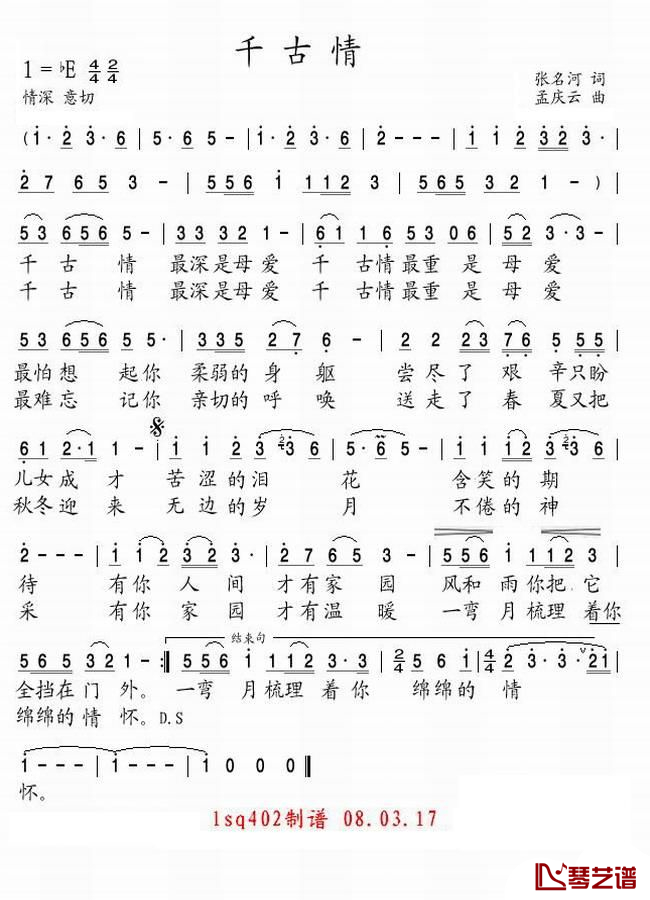 千古情
1=♭E 4/4 2/4
张名河 词
情深 意切
孟庆云 曲
(1·2 3·6 | 5·6 5 - | 3·2 3·5 | 6 - - - | 1·1 1 2 32 3·
2 7 65 3 - | 556 1 112 3 | 565 32 1 - ) |
53 656 5 - | 33 32 1 - | 61 16 53 06 | 52 3·3 - |
千 古 情 最深是母爱 千 古情最重 是 母爱
千 古 情 最深是母爱 千 古情最重 是 母爱
53 656 55· | 335 27 6 - | 22 23 76 5 55 |
最怕想 起你 柔弱的身 躯 尝尽了 艰 辛只盼
最难忘 记你 亲切的呼 唤 送走了 春 夏又把
61 2·1 1 - 1 1 | 12 3 3·6 | 5·6 5 - | 112 3 3·6 |
儿女成 才 苦 涩的泪 花 含笑的 期
秋冬迎 来 无 边的岁 月 不倦的 神
2 - - - | 12 32 3· | 27 65 3· | 556 1 112 3 |
待 有你 人 间 才有家 园 风和 雨你把 它
采 有你 家 园 才有温 暖 一弯 月梳理 着你
结束句
565 321 - :| 556 1 112 3·3 | 2/4 56 1 | 4/4 2 3·3·21 |
全挡在门 外。 一弯 月梳理 着你 绵绵的 情
绵绵的情 怀。D.S
1 - - - | 1 - - - | 1 0 0 0 ‖
怀。
1sq402制谱 08.03.17
琴艺谱